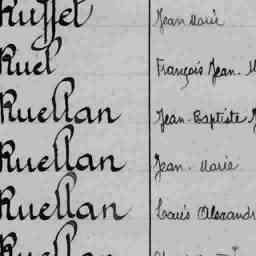 Ruffet Jean Marie
Ruel François Jean. M
Ruellan Jean-Baptiste
Ruellan Jean. Marie
Ruellan Louis Alexandr
Ruellan